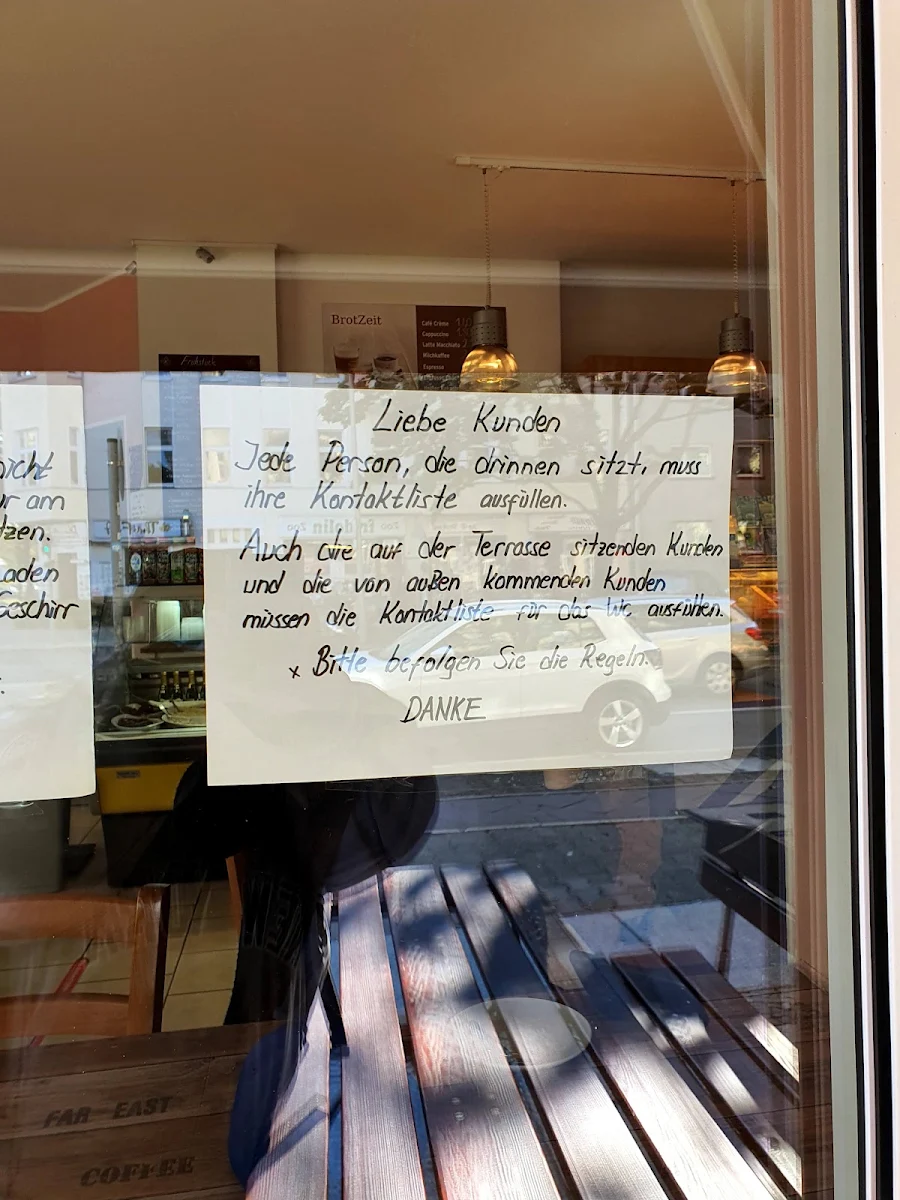 BrotZeit
Café Crème
Cappuccino
Latte Macchiato
Milchkaffee
Espresso
Frühstück
Liebe Kunden
Jede Person, die drinnen sitzt, muss
ihre Kontaktliste ausfüllen.
Auch die auf der Terrasse sitzenden Kunden
und die von außen kommenden Kunden
müssen die Kontaktliste für das Wc ausfüllen.
x Bitte befolgen Sie die Regeln.
DANKE
nicht
am
tzen.
Laden
Geschirr
FAR EAST
COFFEE